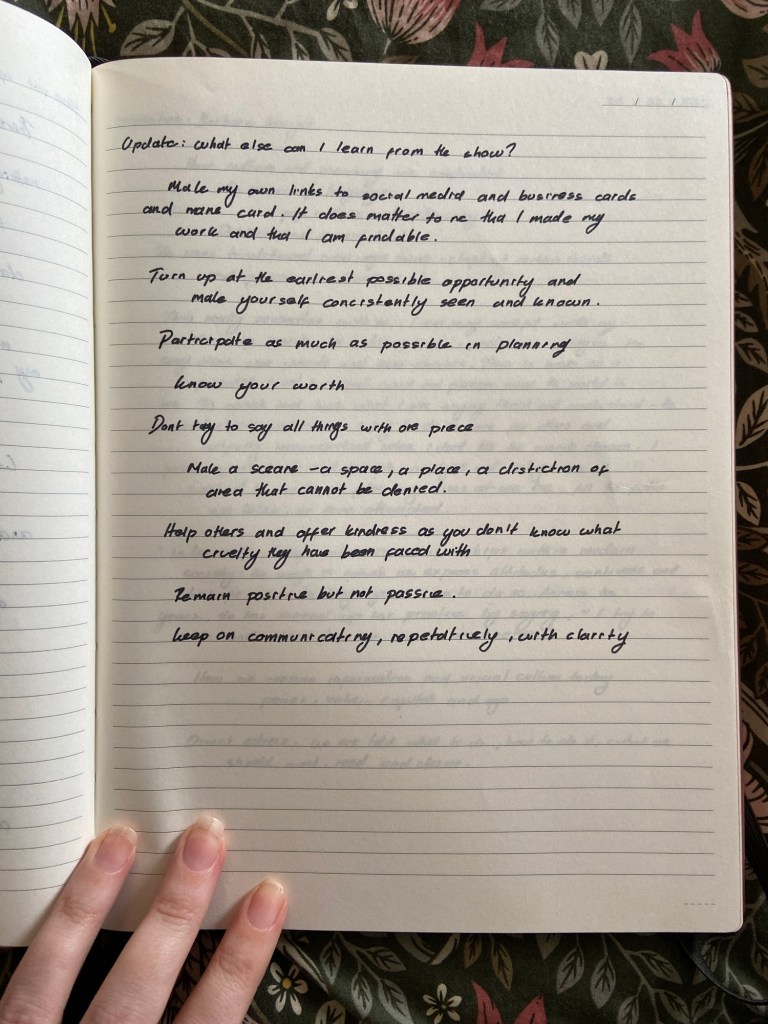 Update: what else can I learn from the show?
Make my own links to social media and business cards
and name card. It does matter to me tha I made my
work and tha I am findable.
Turn up at the earliest possible opportunity and
make yourself concistently seen and known.
Participate as much as possible in planning
know your worth
Dont try to say all things with one piece
Make a sceane - a space, a place, a distiction of
area that cannot be denied.
Help others and offer kindness as you don't know what
cruelty they have been faced with
Remain positive but not passive.
keep on communicating, repetatively, with clarity